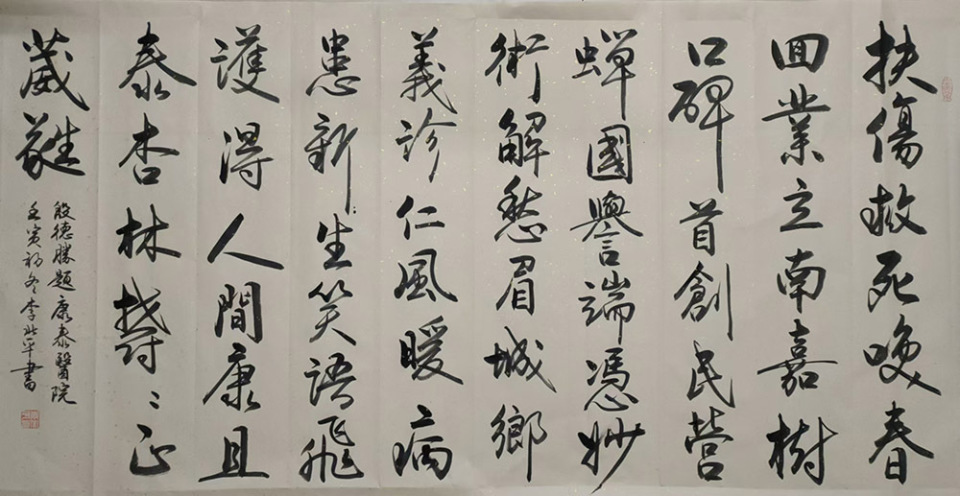 扶傷救死喚春
回業立南嘉樹
口碑首創民營
蟬國譽端憑妙
術解愁眉城鄉
義診仁風暖病
患新生笑語飛
護得人間康且
泰杏林鬱〻正
葳蕤
殷德勝題康泰醫院
壬寅初冬李平書